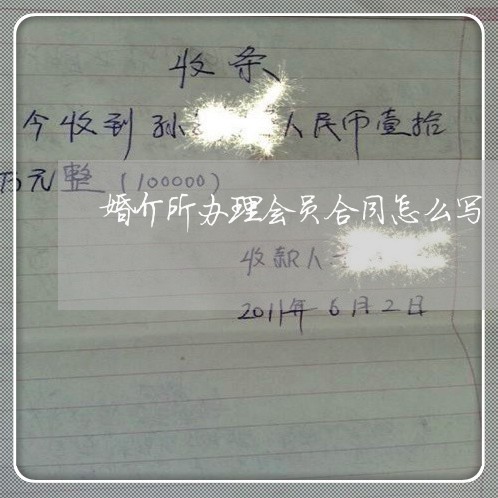 收条
今收到孙 人民币壹拾
万元整(100000)
婚介所办理会员合同怎么写
收款人
2011年6月2日